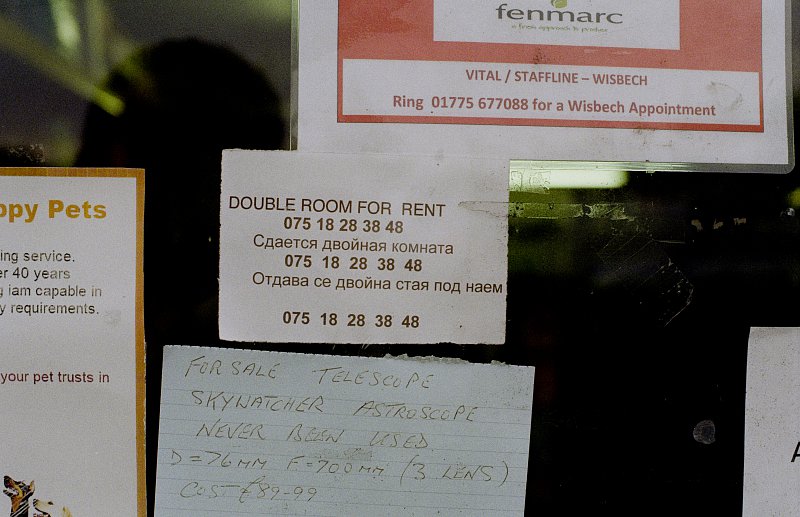 fenmarc
a fresh approach to produce
VITAL / STAFFLINE – WISBECH
Ring 01775 677088 for a Wisbech Appointment
DOUBLE ROOM FOR RENT
075 18 28 38 48
Сдается двойная комната
075 18 28 38 48
Отдава се двойна стая под наем
075 18 28 38 48
ppy Pets
ing service.
er 40 years
g iam capable in
y requirements.
your pet trusts in
FOR SALE TELESCOPE
SKYWATCHER ASTROSCOPE
NEVER BEEN USED
D=76MM F=700MM (3 LENS)
COST £89-99
A